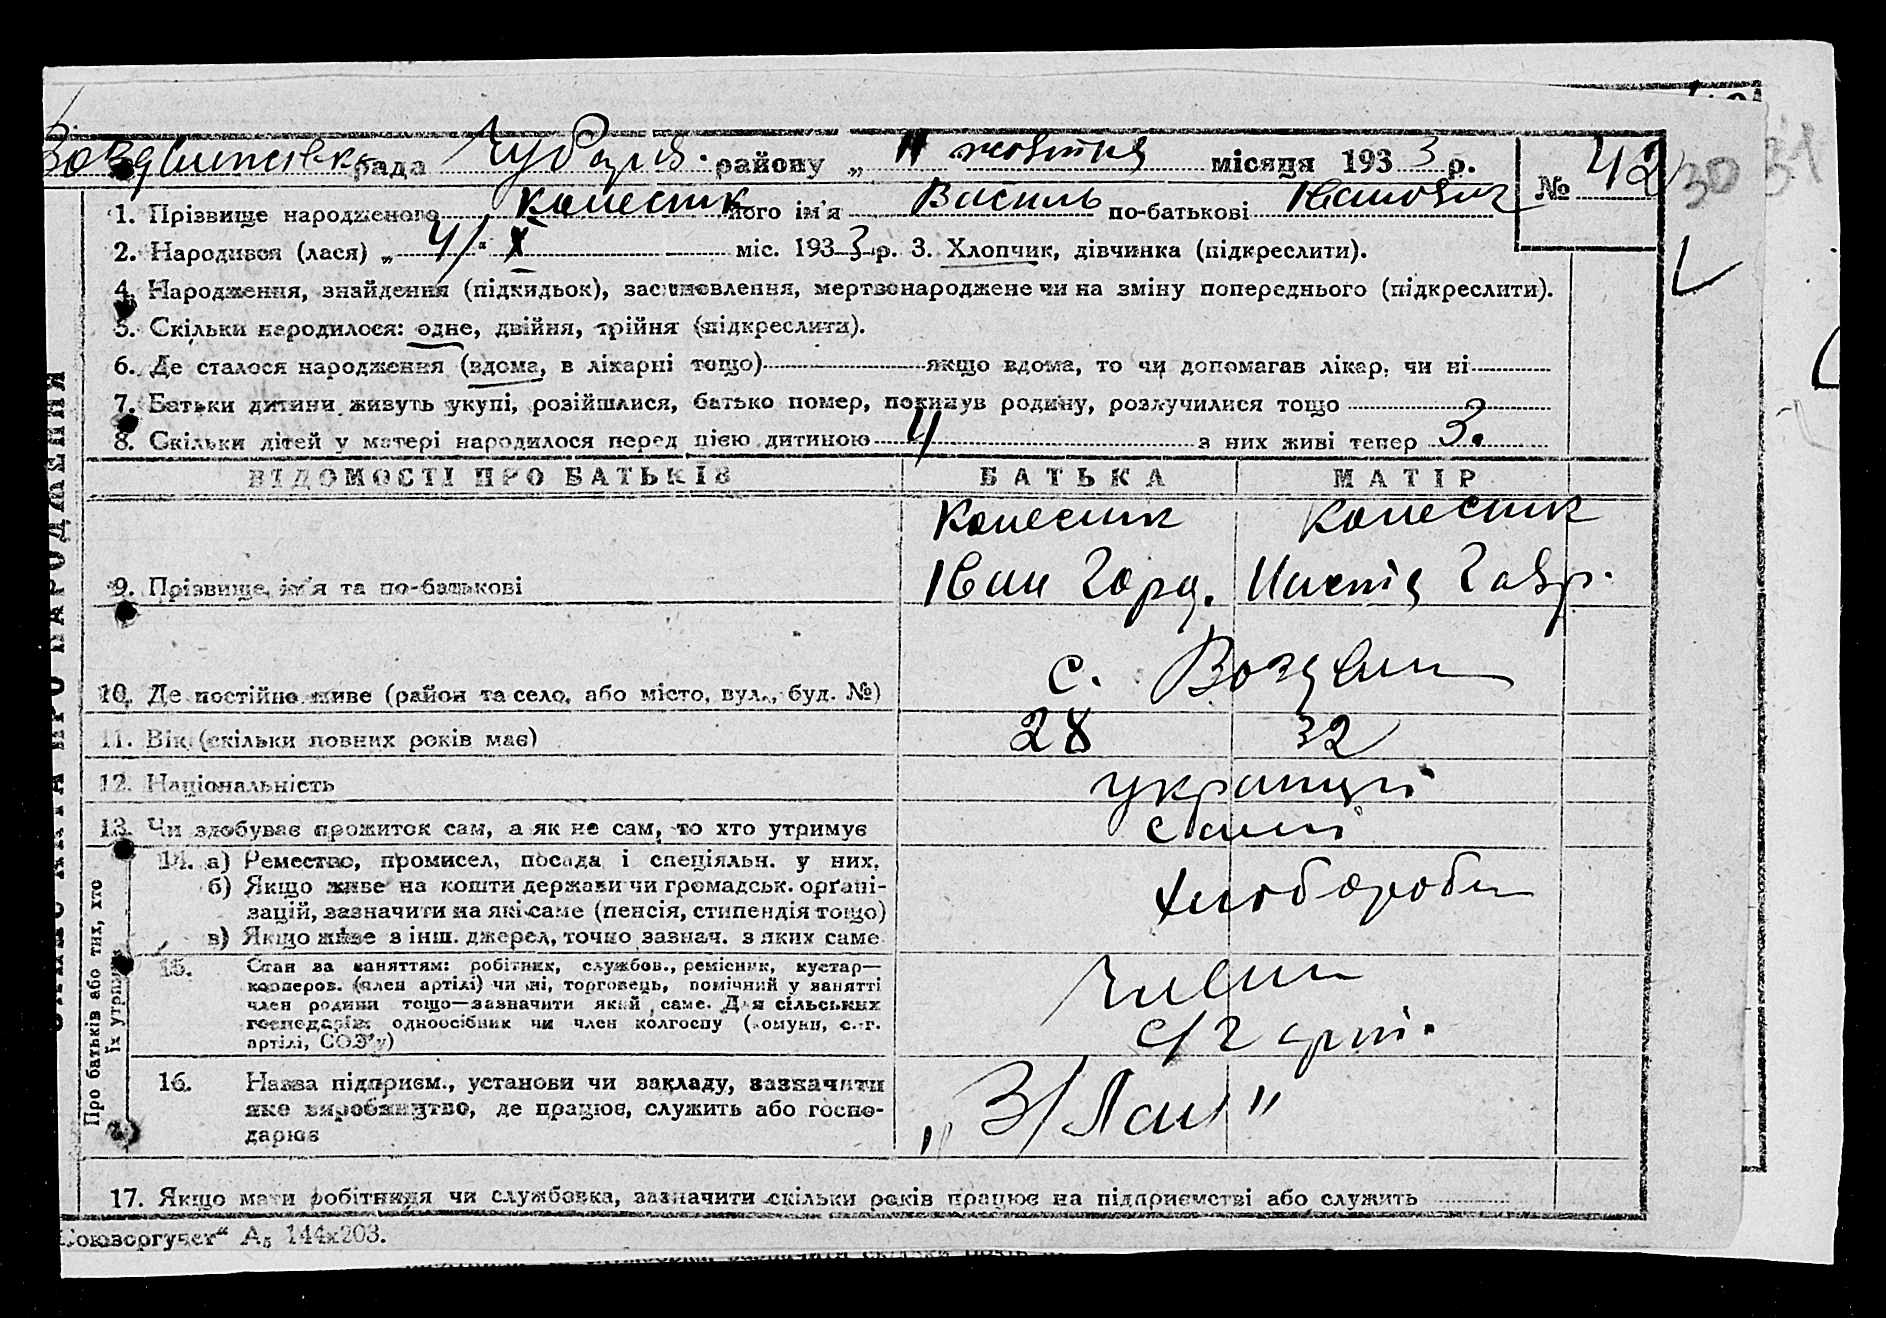 Воздвиженська рада Чубарів. району „11 жовтня місяця 1933 р. № 42 30 31
1. Прізвище народженого Колесник його ім'я Василь по-батькові Іванович
2. Народився (лася) „4/" X міс. 1933 р. 3. Хлопчик, дівчинка (підкреслити).
4. Народження, знайдення (підкидьок), засиновлення, мертвонароджене чи на зміну попереднього (підкреслити).
5. Скільки народилося: одне, двійня, трійня (підкреслити).
6. Де сталося народження (вдома, в лікарні тощо) якщо вдома, то чи допомагав лікар, чи ні
7. Батьки дитини живуть укупі, розійшлися, батько помер, покинув родину, розлучилися тощо
8. Скільки дітей у матері народилося перед цією дитиною 4 з них живі тепер 3.
ВІДОМОСТІ ПРО БАТЬКІВ БАТЬКА МАТІР
Колесник Колесник
9. Прізвище, ім'я та по-батькові Іван Горд. Настя Гавр.
10. Де постійно живе (район та село, або місто, вул., буд. №) с. Воздвиж
11. Вік (скільки повних років має) 28 32
12. Національність українці
13. Чи здобуває прожиток сам, а як не сам, то хто утримує самі
14. а) Ремество, промисел, посада і спеціяльн. у них.
б) Якщо живе на кошти держави чи громадськ. орґані-
зацій, зазначити на які саме (пенсія, стипендія тощо) хлібороби
в) Якщо живе з інш. джерел, точно зазнач. з яких саме
15. Стан за заняттям: робітник, службов., ремісник, кустар—
кооперов. (член артілі) чи ні, торговець, помічний у занятті
член родини тощо—зазначити який саме. Для сільських
господарів: одноосібник чи член колгоспу (комуни, с.-г.
артілі, СОЗ'у)
Члени
с/г арт.
16. Назва підприєм., установи чи закладу, зазначити
яке виробництво, де працює, служить або госпо-
дарює
17. Якщо мати робітниця чи службовка, зазначити скільки років працює на підприємстві або служить
Союзоргучет" А5 144х203.
Про батьків або тих, хто
їх утримує
ЗАПИС АКТА ПРО НАРОДЖЕННЯ